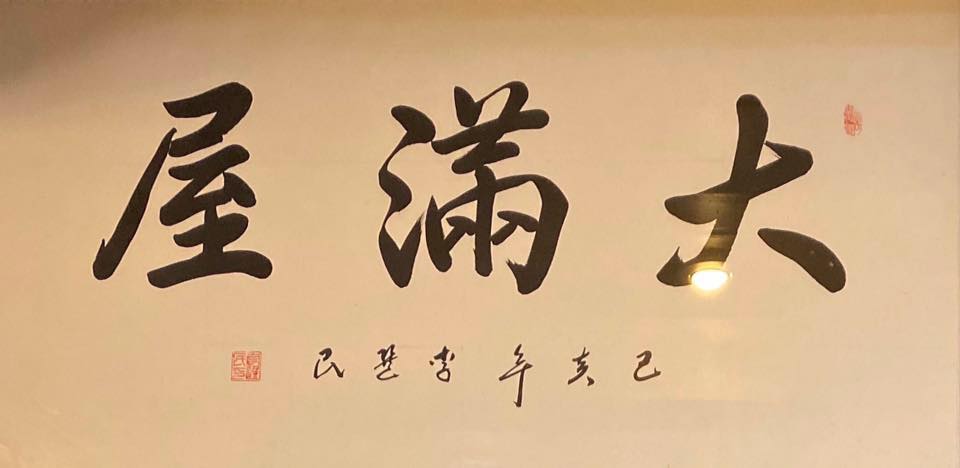 大滿屋
己亥年李民